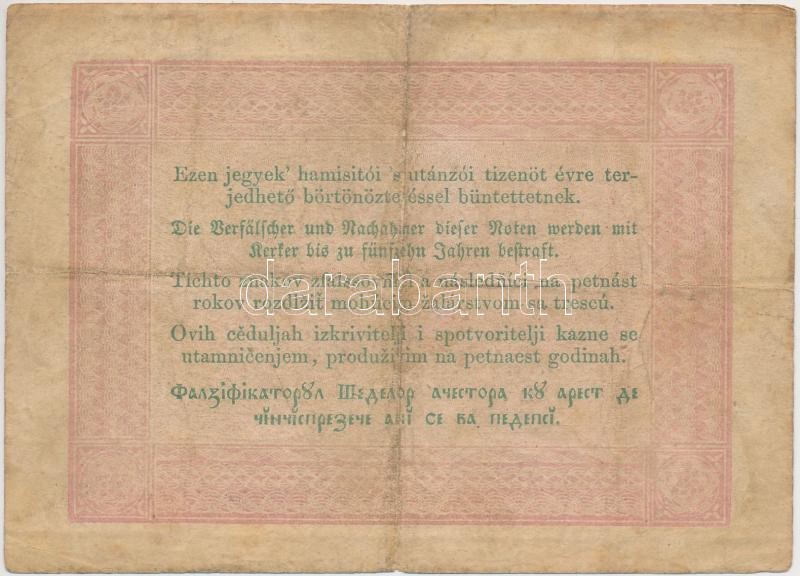 Ezen jegyek' hamisitói 's utánzói tizenöt évre ter-
jedhető börtönöztetéssel büntettetnek.
Die Verfälscher und Nachahmer dieser Noten werden mit
Kerker bis zu fünfzehn Jahren bestraft.
darabanth
Tíchto znakov a následňíci na petnást
rokov rozdlžiť mohúcím žalárstvom sa trescú.
Ovih cĕduljah izkrivitelji i spotvoritelji kazne se
utamničenjem, produživim na petnaest godinah.
Фалꙁіфікаторꙋл Шеделор ачестора кꙋ арест де
чінчіспрезече ані се ва педепсі.